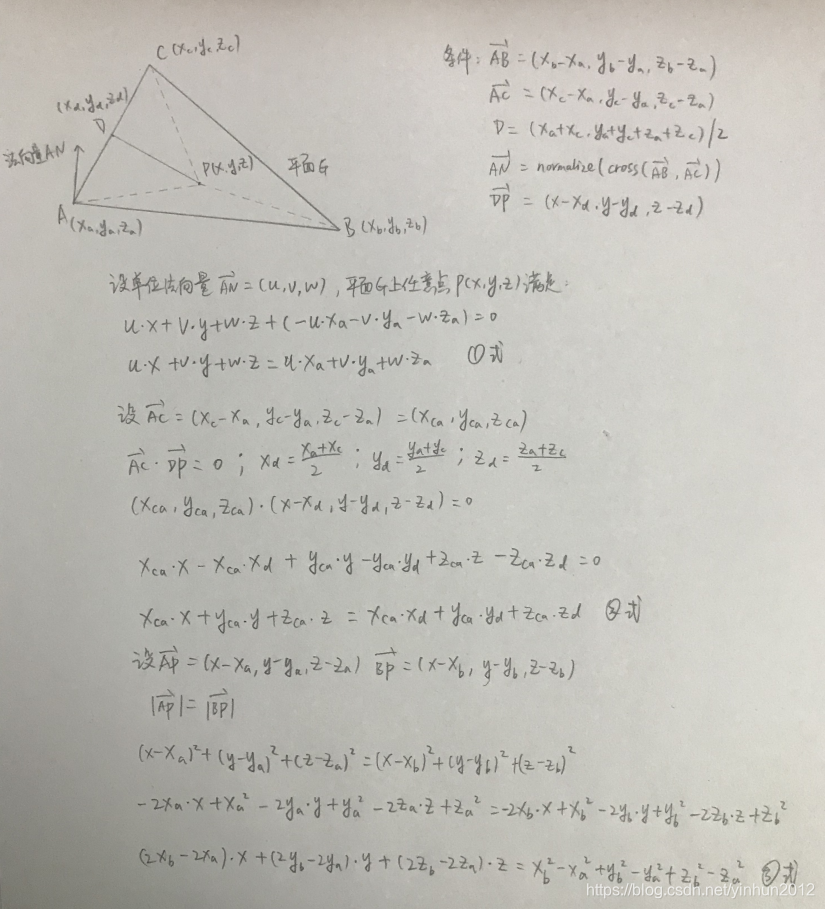 C(xc,yc,zc)
(xd,yd,zd)
D
法向量AN
P(x,y,z)
平面G
A
(xa,ya,za)
B(xb,yb,zb)
条件: AB⃗ = (xb-xa, yb-ya, zb-za)
AC⃗ = (xc-xa, yc-ya, zc-za)
D = (xa+xc, ya+yc+za+zc)/2
AN⃗ = normalize(cross(AB⃗, AC⃗))
DP⃗ = (x-xd, y-yd, z-zd)
设单位法向量 AN⃗ = (u,v,w), 平面G上任意点 P(x,y,z) 满足:
u·x+v·y+w·z+(-u·xa-v·ya-w·za)=0
u·x+v·y+w·z=u·xa+v·ya+w·za ①式
设 AC⃗ = (xc-xa, yc-ya, zc-za) = (xca, yca, zca)
AC⃗·DP⃗ = 0 ; xd = (xa+xc)/2 ; yd = (ya+yc)/2 ; zd = (za+zc)/2
(xca, yca, zca)·(x-xd, y-yd, z-zd)=0
xca·x - xca·xd + yca·y - yca·yd + zca·z - zca·zd = 0
xca·x + yca·y + zca·z = xca·xd + yca·yd + zca·zd ②式
设 AP⃗ = (x-xa, y-ya, z-za) BP⃗ = (x-xb, y-yb, z-zb)
|AP⃗| = |BP⃗|
(x-xa)²+(y-ya)²+(z-za)²=(x-xb)²+(y-yb)²+(z-zb)²
-2xa·x+xa²-2ya·y+ya²-2za·z+za²=-2xb·x+xb²-2yb·y+yb²-2zb·z+zb²
(2xb-2xa)·x+(2yb-2ya)·y+(2zb-2za)·z=xb²-xa²+yb²-ya²+zb²-za² ③式
https://blog.csdn.net/yinhun2012